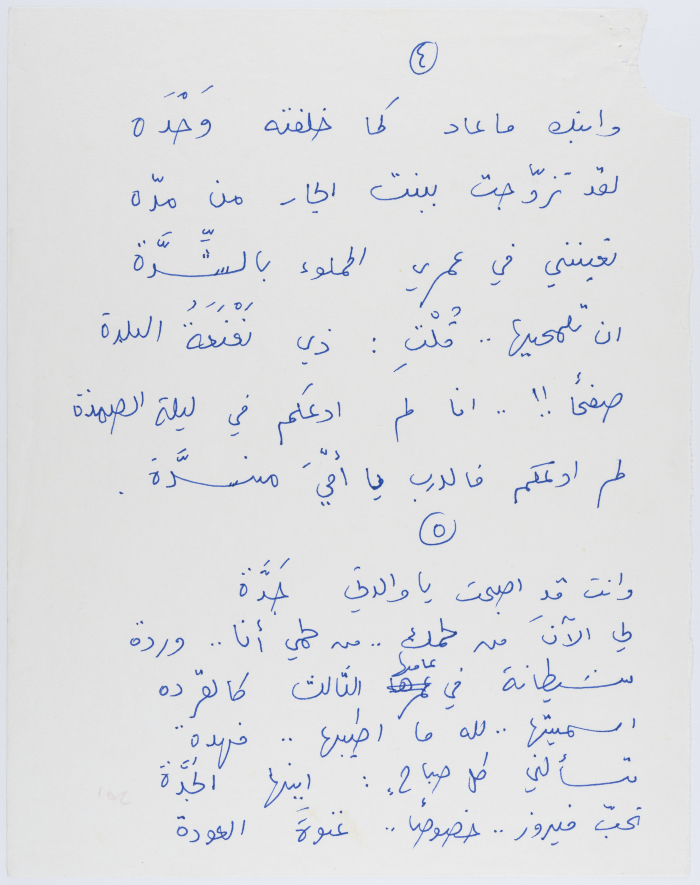 ٤
وابنك ما عاد كما خلفته وَحْدَه
لقد تزوّجت ببنت الجار من مدّه
تعينني في عمري المملوء بالشِّدَّة
ان تلمحيها .. قُلْتِ : ذي نَفْنَفَةُ البلدة
صفحاً !! .. انا لم ادعكم في ليلة الصمدة
لم ادعكم فالدرب يا أمّيَ منسدَّة .
٥
وانت قد اصبحت يا والدتي جَدَّة
لي الآنَ من لحمك .. من لحمي أنا .. وردة
شيطانة في عامها الثالث كالقرّده
اسميتها .. لله ما اطيبها .. فهدة
تسألني كل صباحٍ : اينها الجَدَّة
تحبّ فيروز .. خصوصاً .. غنوةَ العودة